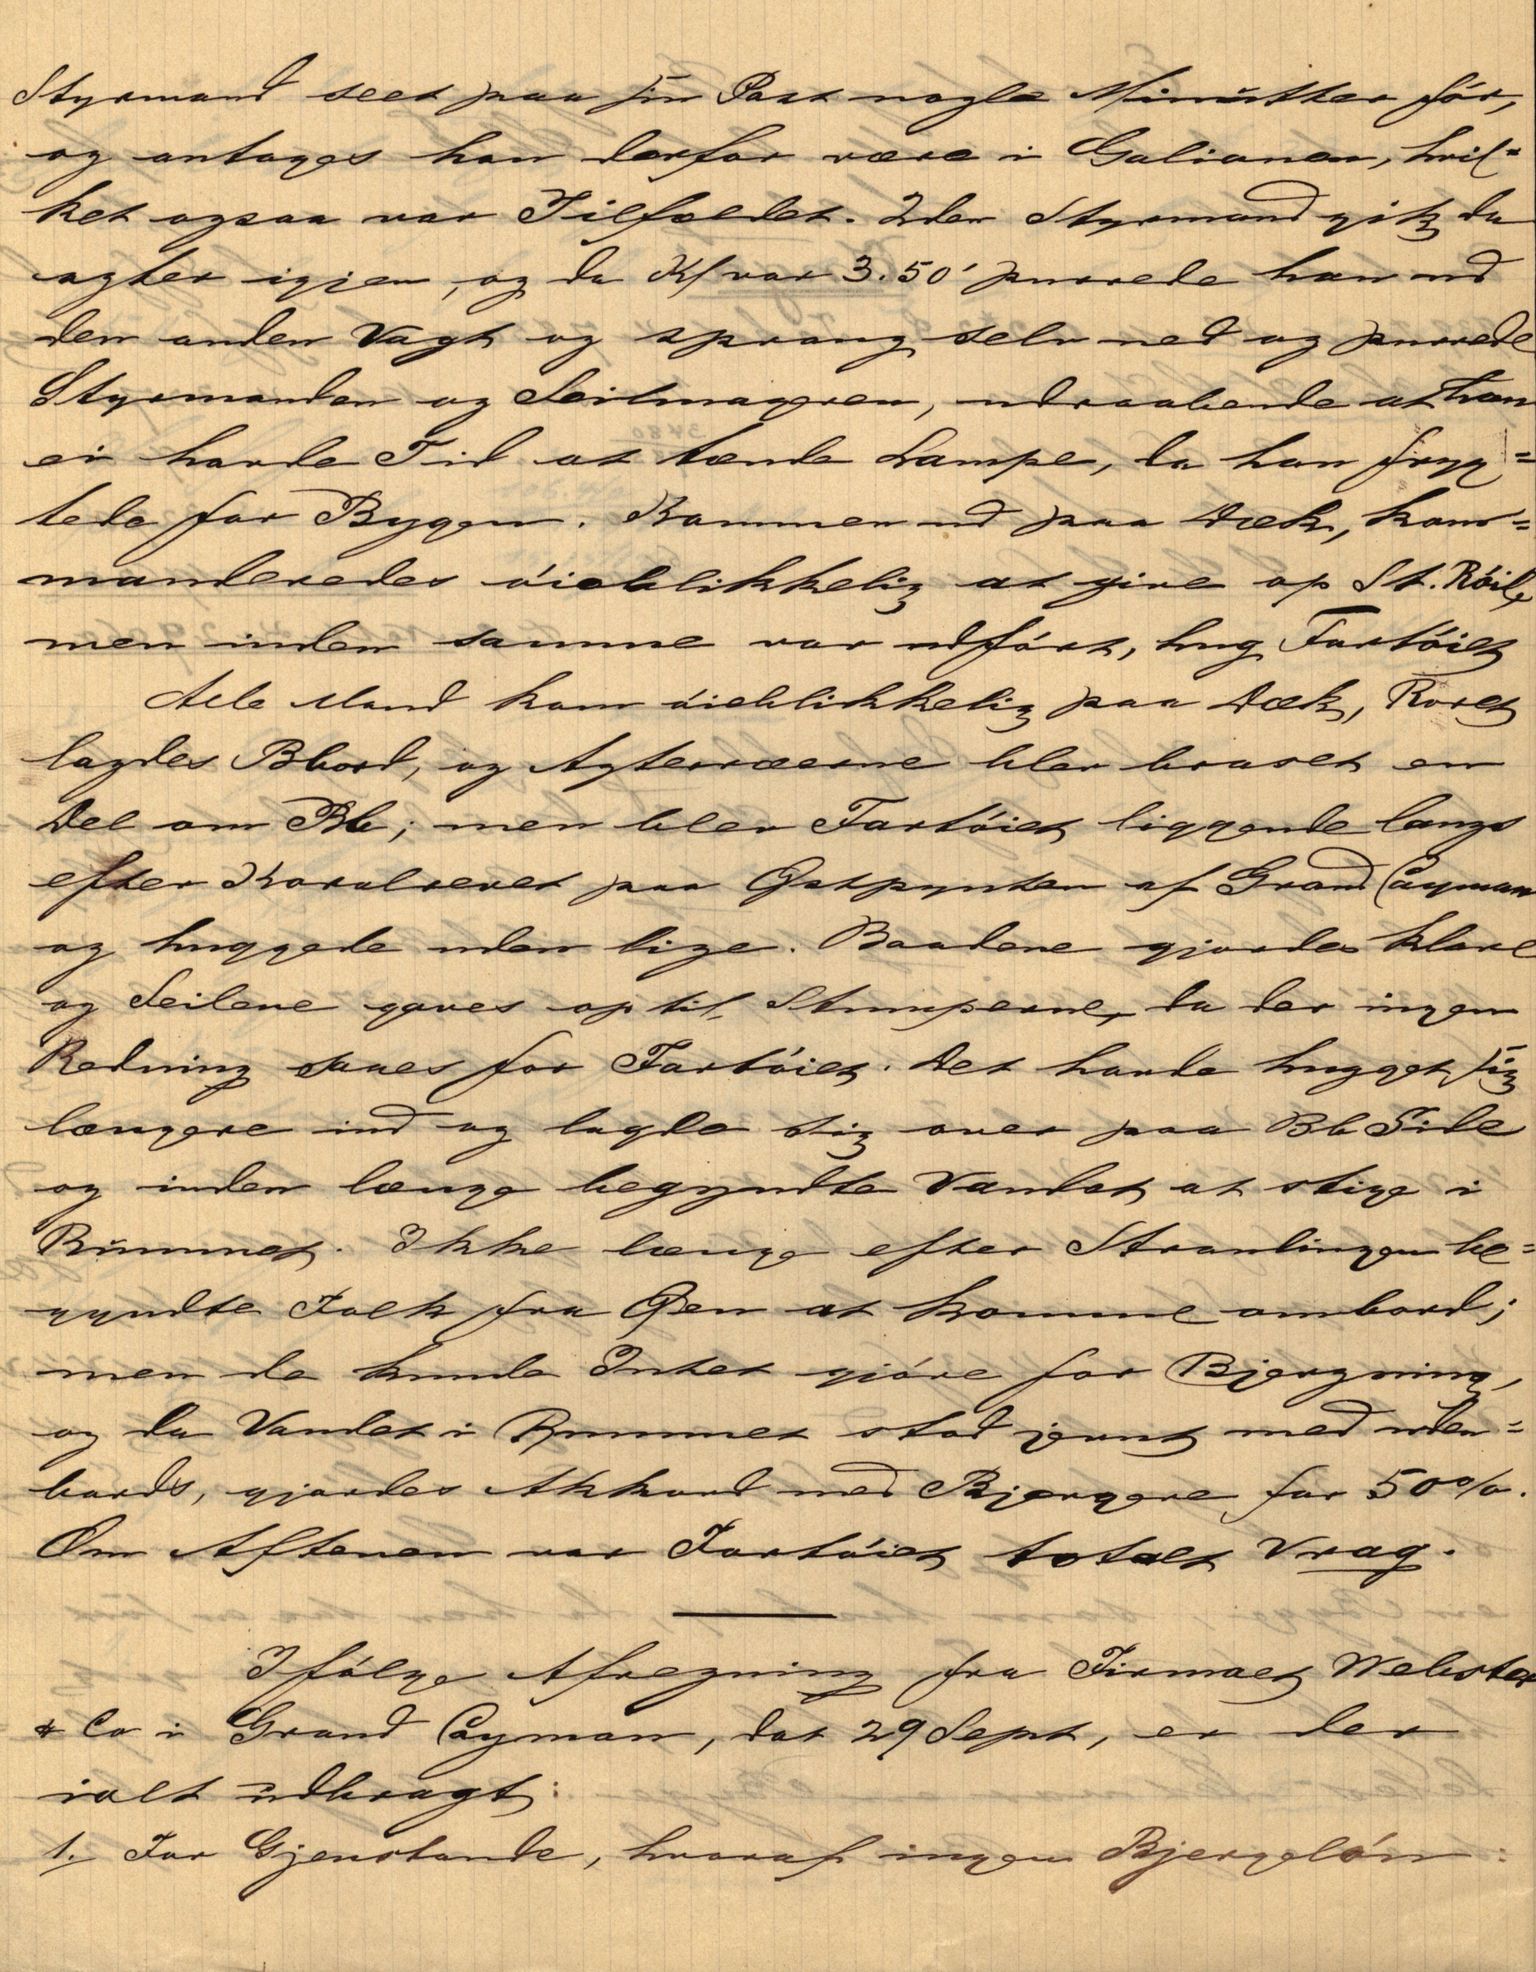 Styrmand seet paa sin Post nogle Minutter før,
og antages han derfor være i Galionen, hvil=
ket ogsaa var Tilfældet. 2den Styrmand gik da
agter igjen, og da Kl var 3.50' purrede han ud
den anden Vagt og sprang selv ned og purrede
Styrmanden og Seilmageren, udraabende at han
ei havde Tid at tænde Lampe, da han fryg=
tede for Bygen. Kommen ud paa Dæk, kom=
manderedes óieblikkelig at give op St. Róil,
men inden samme var udfórt, hug Fartóiet
Alle Mand kom óieblikkelig paa Dæk, Roret
lagdes Bbord, og Agterræerne blev braset en
Del om Bb; men blev Fartóiet liggende langs
efter Koralrevet paa Østpynten af Grand Cayman
og huggede uden lige. Baadene gjordes klare
og Seilene gaves op til Stumperne, da der ingen
Redning saaes for Fartóiet. Det havde hugget sig
længere ind og lagde sig over paa Bb Side
og inden længe begyndte Vandet at stige i
Rummet. Ikke længe efter Strandingen be=
gyndte Folk fra Øen at komme ombord;
men de kunde Intet gjóre for Bjergning,
og da Vandet i Rummet stod jevnt med uden=
bords, gjordes Akkord med Bjergere for 50%.
Om Aftenen var Fartóiet totalt Vrag.
Ifólge Afregning fra Firmaet Webster
& Co i Grand Cayman, dat 29 Sept, er der
ialt udbragt:
1. For Gjenstande, hvoraf ingen Bjergelón: